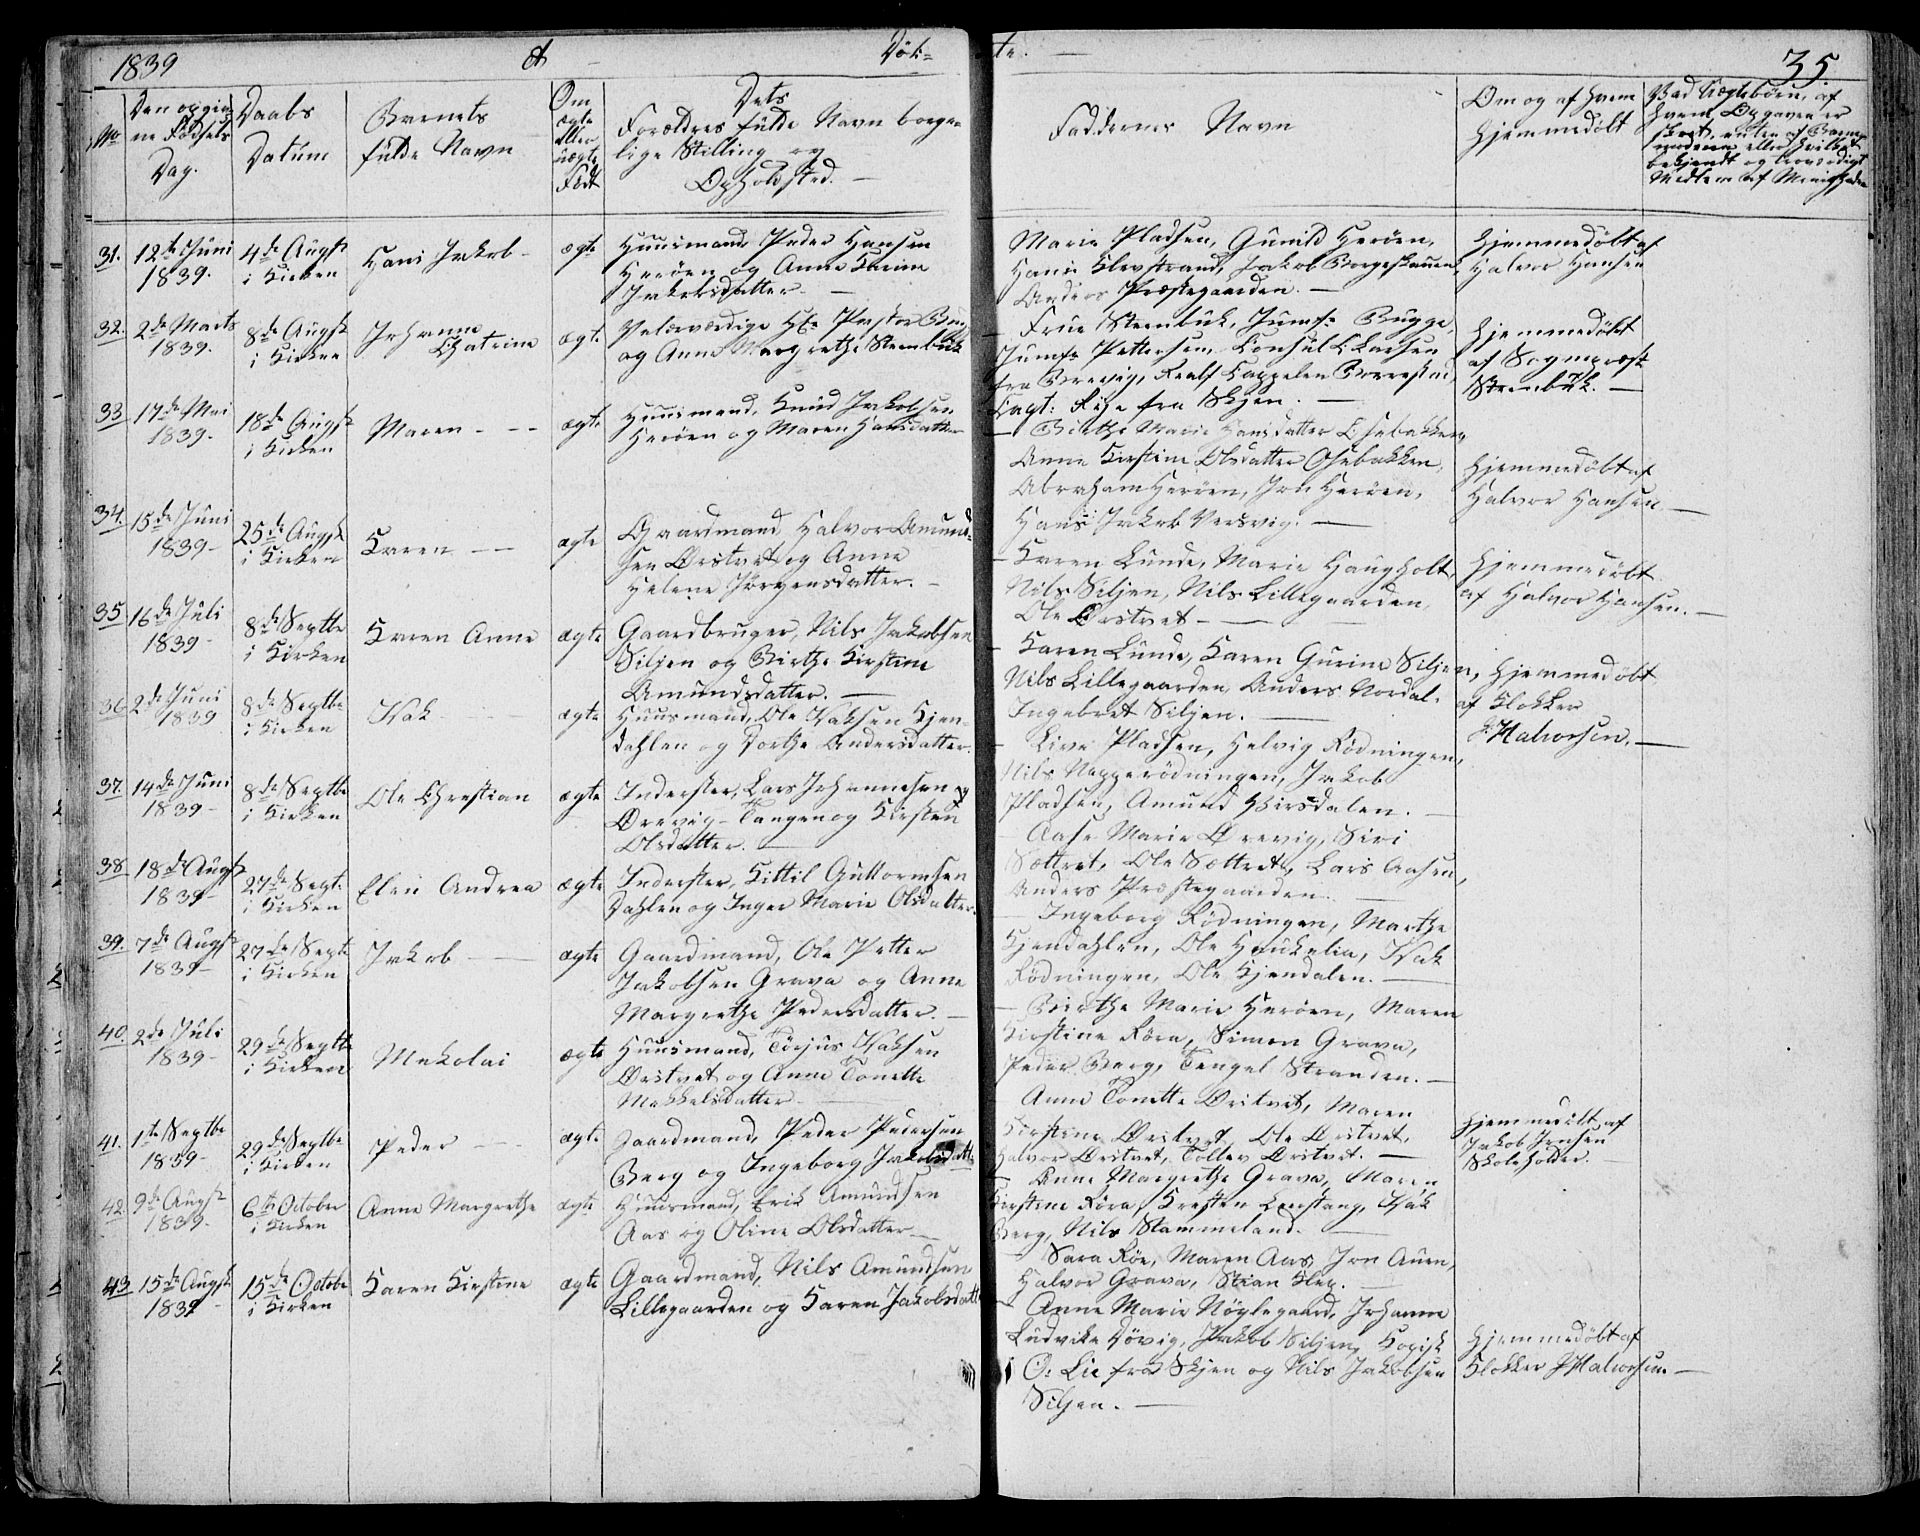 1839
A
Døb=
te.
35.
No
Den opgiv
ne Fødsels
Dag.
Daabs
Datum
Barnets
fulde Navn
Om
ægte
eller
uægte
Født
Dets
Forældres fulde Navn borger-
lige Stilling og
Opholdsted. —
Faddernes Navn
Om og af hvem
hjemmedøbt
Ved Uægtebørn, af
hvem Opgaven er
skeet, enten af Barne-
moderen eller hvilket
bekjendt og troværdigt
Medlem af Menigheden
31.
12te Juni
1839.
4de Augst
i Kirken
Hans Jakob -
ægte
Huusmand Peder Hansen
Herøen og Anne Karine
Jakobsdatter. —
Marie Pladsen, Gunild Herøen,
Hans Klevstrand, Jakob Borgeskauen
Anders Præstegaarden. —
Hjemmedøbt af
Halvor Hansen
32.
2de Marts
1839.
8de Augst
i Kirken
Johanne
Chatrine
ægte
Velærværdige Hr. Pastor
og Anne Margrethe Steenbuk
Frue Steenbuk, Jumfr Bugge,
Jumfr Pettersen, Consul C Larsen
fra Brevig, Cappelen
Capt: fra Skjen. —
Hjemmedøbt
af Sognepræst
Steenbuk. —
33.
17de Mai
1839.
18de Augst
i Kirken
Maren - - -
ægte
Huusmand, Knud Jakobsen
Herøen og Maren Hansdatter
— Birthe Marie Hansdatter Osebakken,
Anne Kirstine Olsdatter Osebakken,
Abraham Herøen, Jon Herøen,
Hans Jakob Versvig. —
Hjemmedøbt af
Halvor Hansen. —
34.
15de Juni
1839-
25de Augst
i Kirken
Karen - -
ægte
Gaardmand Halvor Amund-
sen Ørstvet og Anne
Helene Jørgensdatter. -
— Karen Lunde, Marie Haugholt,
Nils Siljen, Nils Lillegaarden,
Ole Ørstvet - —
Hjemmedøbt
af Halvor Hansen. —
35
16de Juli
1839-
8de Septbr
i Kirken
Karen Anne
ægte
Gaardbruger, Nils Jakobsen
Siljen og Birthe Kirstine
Amundsdatter. —
— Karen Lunde, Karen Gurine Siljen,
Nils Lillegaarden, Anders Nordal.
Ingebret Siljen. —
Hjemmedøbt
af Klokker
J Halvorsen. —
36
2de Juni
1839
8de Septbr
i Kirken
Isak -
ægte
Huusmand, Ole Isaksen Kjen-
dahlen og Dorthe Andersdatter.
— Live Pladsen, Helvig Rödningen,
Nils Nopperödningen, Jakob
Pladsen, Amund Birsdalen. -
37.
14de Juni
1839-
8de Septbr
i Kirken
Ole Christian
ægte
Inderster, Lars Johannesen
Ørevig-Tangen og Kirsten
Olsdatter. —
— Aase Marie Ørevig, Siri
Sættret, Ole Sættret, Lars Aasen,
Anders Præstegaarden. —
38.
18de Augst
1839-
27de Sept.
i Kirken
Elen Andrea
ægte
Inderster, Kittil Guttormsen
Dahlen og Inger Marie Olsdatter.
— Ingeborg Rödningen, Marthe
Kjendahlen, Ole Haukelia, Isak
Rödningen, Ole Kjendalen. —
39.
7de Augst
1839-
27de Sept
i Kirken
Jakob - -
ægte
Gaardmand, Ole Petter
Jakobsen Grava og Anne
Margrethe Pedersdatter. —
— Birthe Marie Herøen, Maren
Kirstine Röra, Simon Grava,
Peder Berg, Tengel Stranden. —
40.
2de Juli
1839-
29de Septbr
i Kirken
Mekolai
ægte
Huusmand, Torjus Isaksen
Ørstvet og Anne Tonette
Mekkelsdatter -
Anne Tonette Ørstvet, Maren
Kirstine Ørstvet, Ole Ørstvet,
Halvor Ørstvet, Tollev Ørstvet. —
Hjemmedöbt af
Jakob Jensen
Skoleholder.
41.
1te Septbr
1839-
29de Septbr
i Kirken
Peder - -
ægte
Gaardmand, Peder Pedersen
Berg og Ingeborg Jakobsdatt.
— Anne Margrethe Grava, Maren
Kirstine Röra, Kresten Lerstang, Isak
Berg, Nils Stammeland. —
42.
9de Augst
1839-
6te October
i Kirken
Anne Margrethe
ægte
Huusmand, Erik Amundsen
Aas og Oline Olsdatter -
Sara Röe, Maren Aas, Jon Auen,
Halvor Grava, Stian Klep. —
43
15de Augst
1839 -
15de Octobr
i Kirken
Karen Kirstine
ægte
Gaardmand, Nils Amundsen
Lillegaarden og Karen Jakobsdatt
— Anne Marie Nöglegaard, Johanne
Ludvike Dövig, Jakob Siljen, Kopist
O. Lie fra Skjen og Nils Jakobsen
Siljen. —
Hjemmedøbt af
Klokker J Halvorsen —